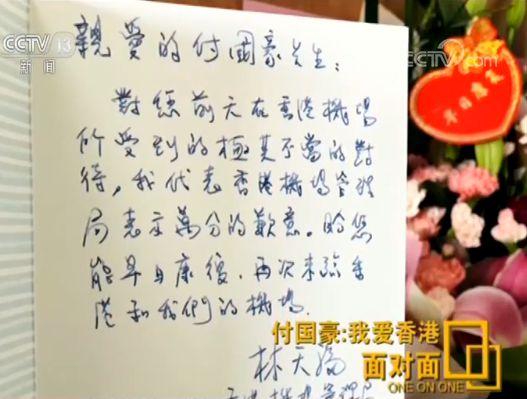 CCTV 13
新闻
CCTV.com
親愛的付國豪先生：
對您前天在香港機場
所受到的極其不當的對
待，我代表香港機場管理
局表示萬分的歉意。盼您
能早日康復，再次來臨香
港和我們的機場。
林天福
早日康复
付国豪:我爱香港
面对面
ONE ON ONE